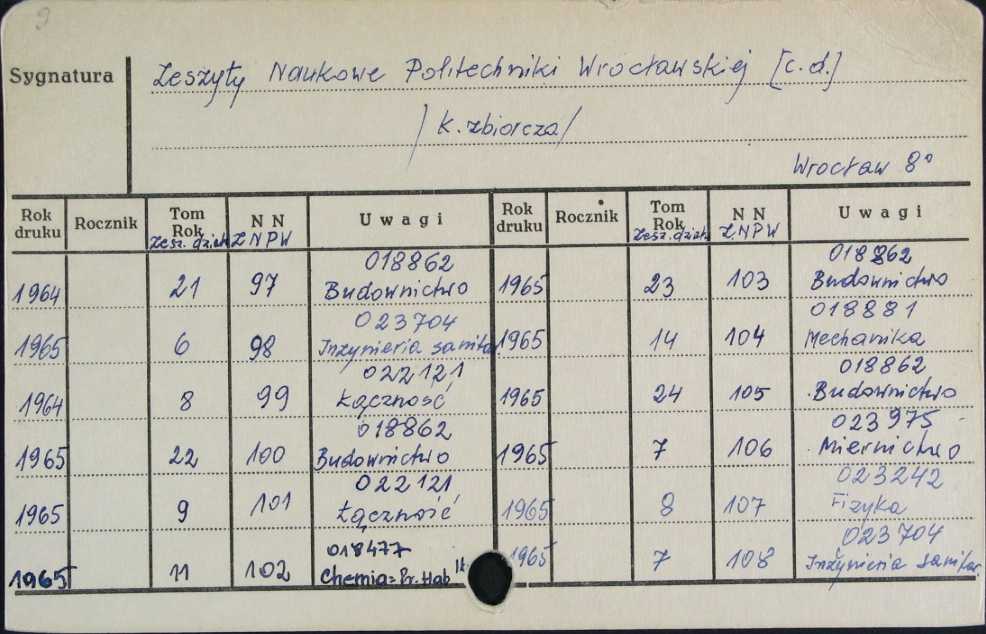 9
Sygnatura
Zeszyty Naukowe Politechniki Wrocławskiej [c.d.]
/K. zbiorcza/
Wrocław 8°
Rok druku Rocznik Tom Rok Zesz. dział. N N Z.N.P.W U w a g i Rok druku Rocznik Tom Rok Zesz. dział. N N Z.N.P.W U w a g i
1964 21 97 018862 Budownictwo 1965 23 103 018862 Budownictwo
1965 6 98 023704 Inżynieria sanitar 1965 14 104 018881 Mechanika
1964 8 99 022121 Łączność 1965 24 105 018862 Budownictwo
1965 22 100 018862 Budownictwo 1965 7 106 023975 Miernictwo
1965 9 101 022121 Łączność 1965 8 107 023242 Fizyka
1965 11 102 018477 Chemia = Pr. Hab 1965 7 108 023704 Inżynieria sanitar.